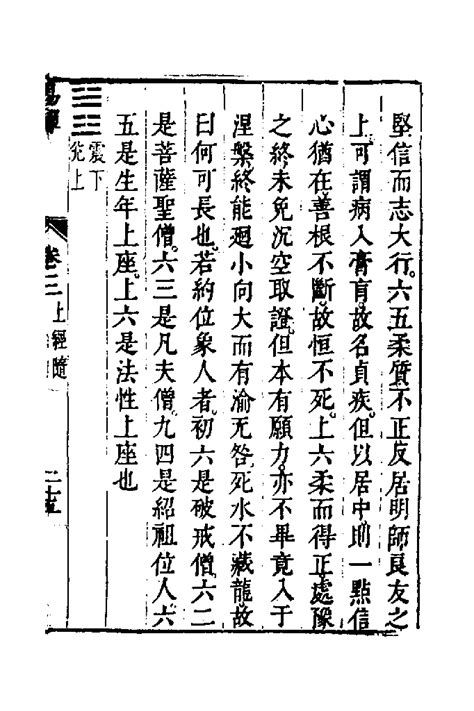 堅信而志大行。六五柔質不正反居明師良友之
上可謂病入膏肓。故名貞疾。但以居中則一點信
心猶在善根不斷。故恒不死。上六柔而得正處豫
之終。未免沉空取證。但本有願力。亦不畢竟入于
涅槃終能迴小向大而有渝无咎。死水不藏龍故
曰何可長也。若約位象人者。初六是破戒僧。六二
是菩薩聖僧。六三是凡夫僧。九四是紹祖位人。六
五是生年上座。上六是法性上座也
震下
兌上
卷三 上經隨